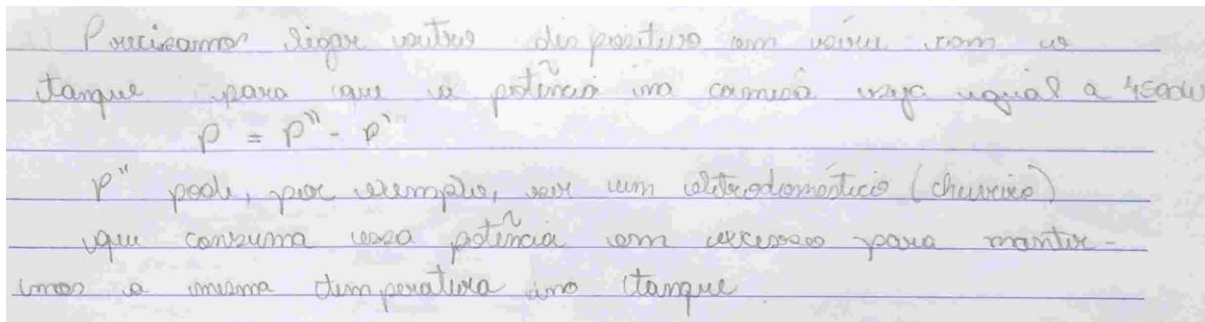 Precisamos ligar outro dispositivo em série com o
tanque para que a potência na camisa seja igual a 4500W
P = P" - P'
P" pode, por exemplo, ser um eletrodoméstico (chuveiro)
que consuma essa potência em excesso para manter-
mos a mesma temperatura no tanque